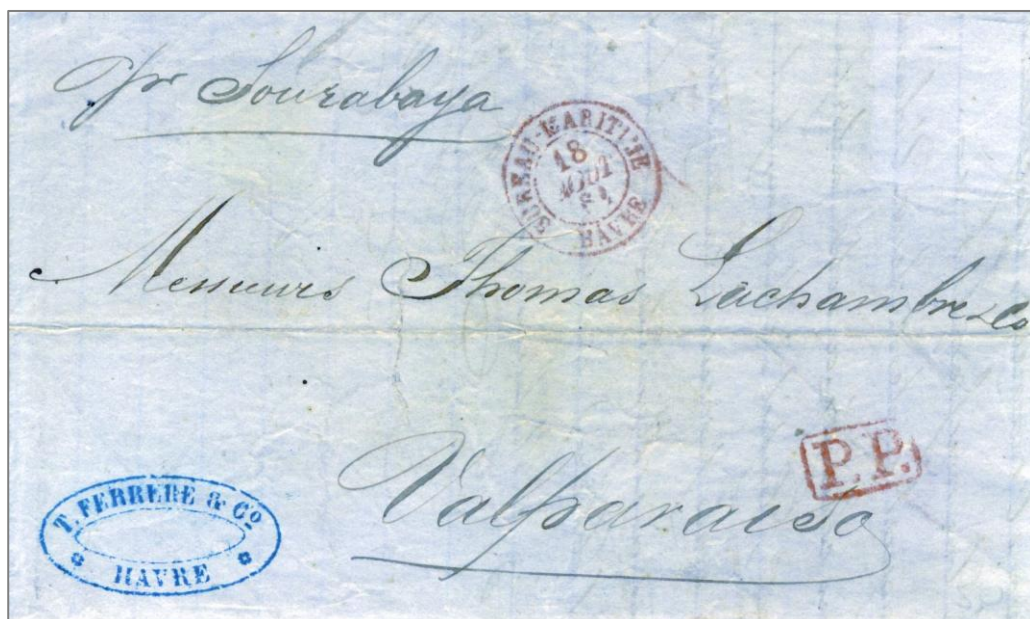 pr Sourabaya
BUREAU-MARITIME
18
AOUT
HAVRE
Messieurs Thomas Lachambre & Co
P.P.
Valparaiso
T. FERRERE & Co
HAVRE